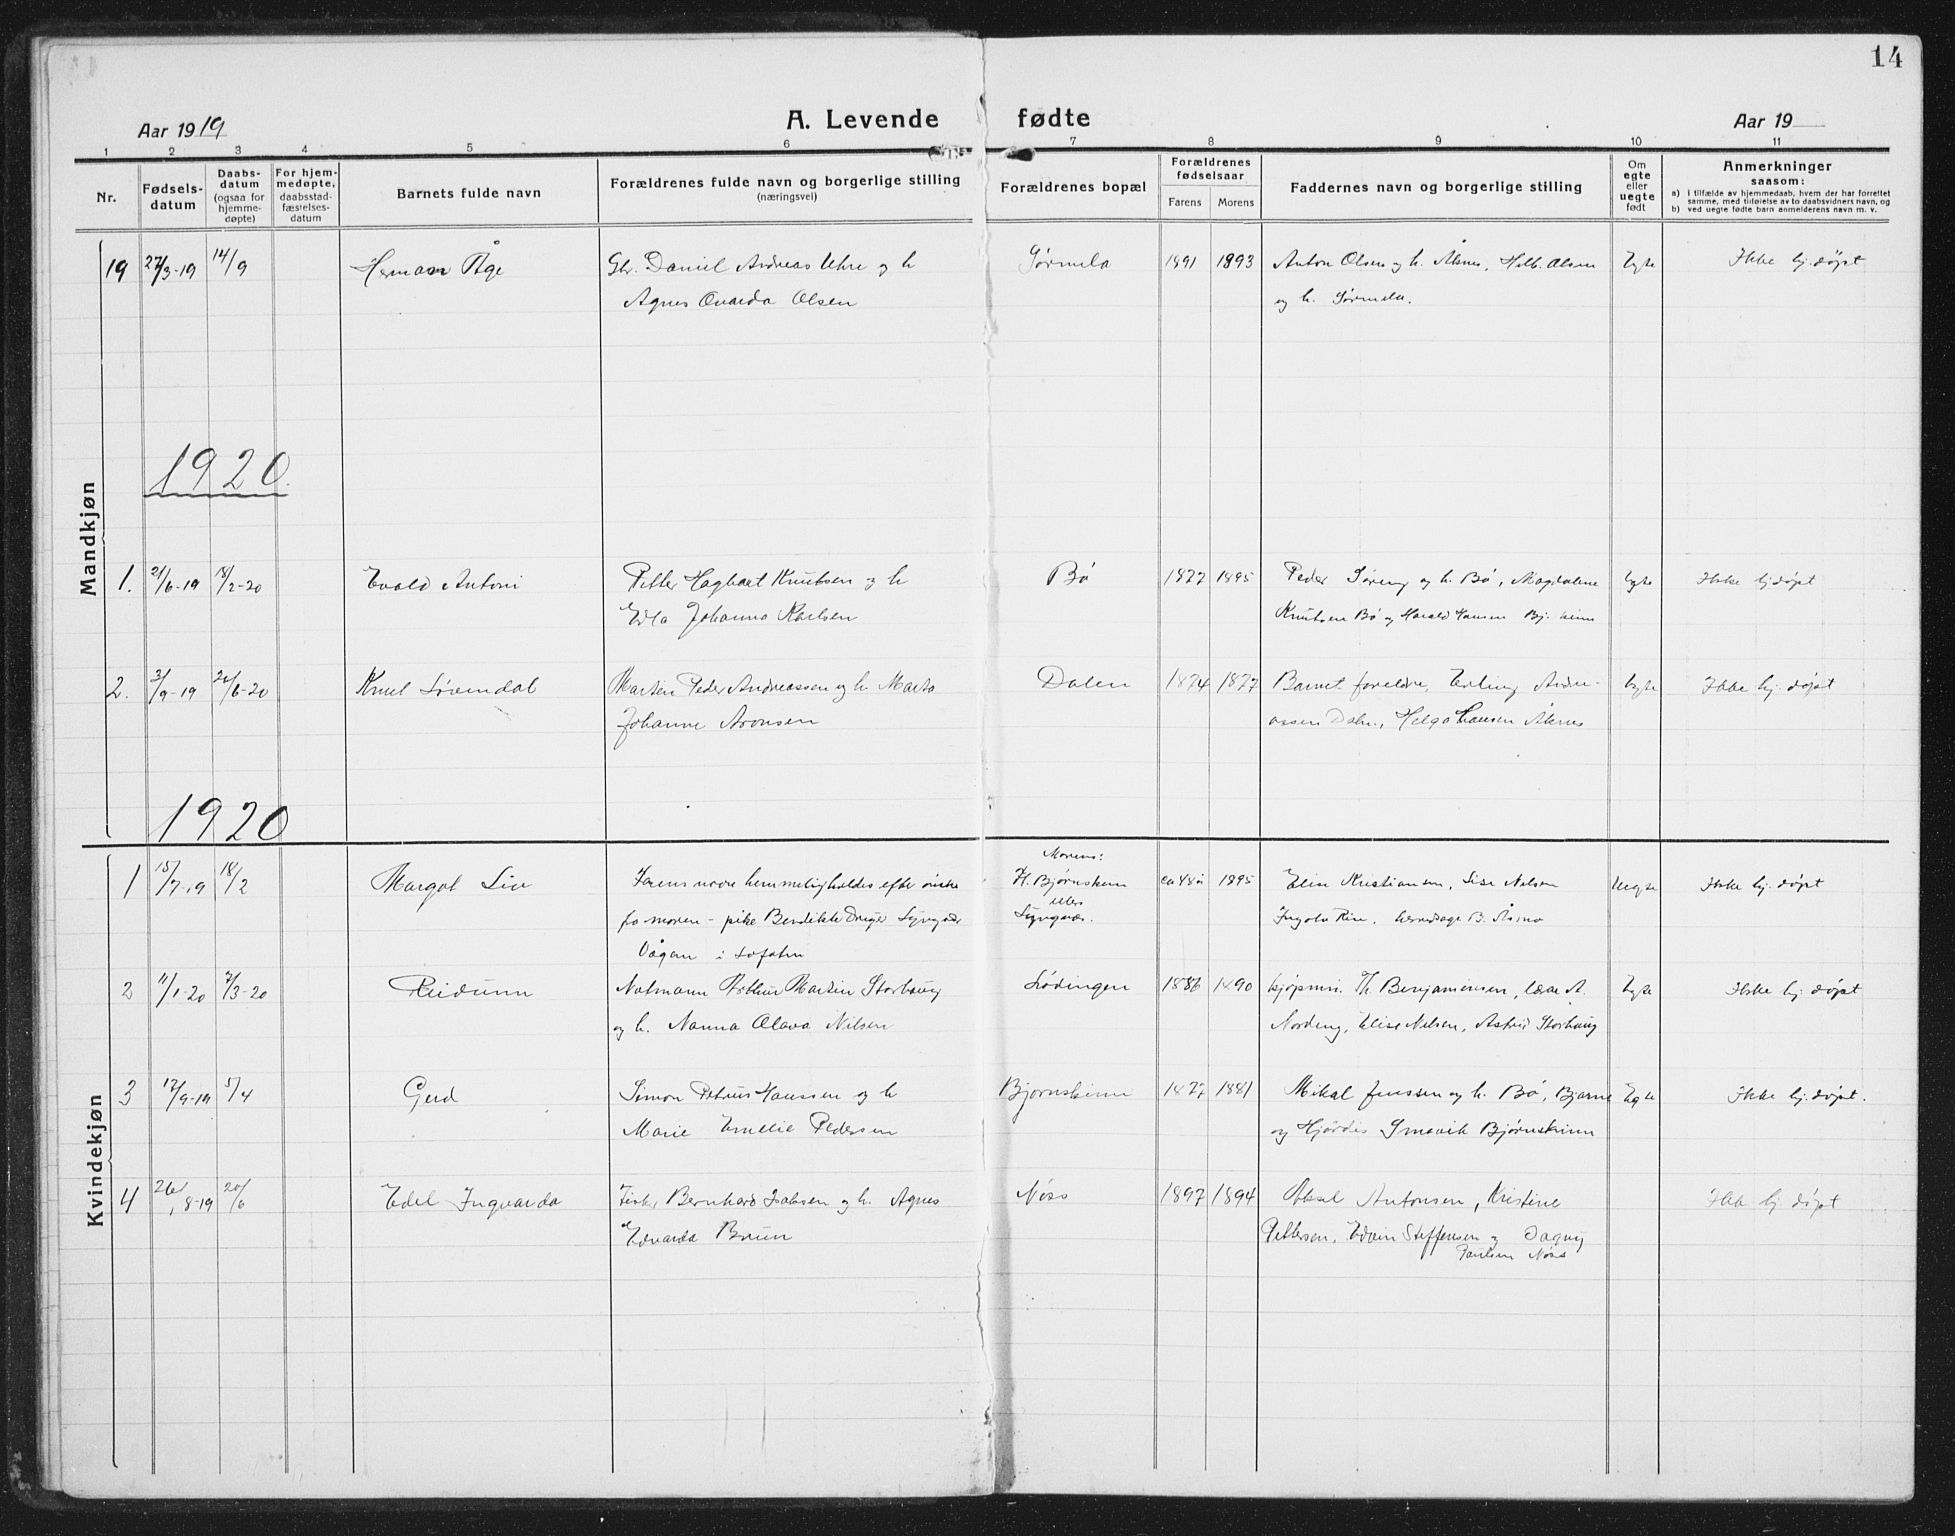 14
Aar 1919
A. Levende fødte
Aar 19
1 2 3 4 5 6 7 8 9 10 11
Nr.
Fødsels-
datum
Daabs-
datum
(ogsaa for
hjemme-
døpte)
For hjem-
medøpte,
daabsstad-
fæstelses-
datum
Barnets fulde navn
Forældrenes fulde navn og borgerlige stilling
(næringsvei)
Forældrenes bopæl
Forældrenes
fødselsaar
Farens Morens
Faddernes navn og borgerlige stilling
Om
egte
eller
uegte
født
Anmerkninger
saasom:
a) i tilfælde av hjemmedaab, hvem der har forrettet
samme, med tilføielse av to daabsvidners navn, og
b) ved uegte fødte barn anmelderens navn m. v.
Mandkjøn
19 27/3-19 14/9 Herman Åge Gbr. Daniel Andreas Uhre og h Sørmela 1891 1893 Anton Olsen og h. Åknes, Hilb. Olsen Egte Ikke hj. døpt
Agnes Ovarda Olsen og h. Sørmela.
1920.
1. 21/6-19 18/2-20 Evald Antoni Petter Hagbart Knutsen og h Bø 1877 1895 Peder Søreng og h. Bø, Magdalene Egte Ikke hj. døpt
Edla Johanna Karlsen Knutsen Bø og Harald Hansen Bj. skinn
2. 3/9-19 20/6-20 Knut Sørendal Martin Peder Andreassen og h. Marta Dalen 1874 1877 Barnet foreldre, Erling Andre- Egte Ikke hj. døpt
Johanne Aronsen assen Dalen, Helga Hansen Åknes
1920
Kvindekjøn
Morens:
1 15/7-19 18/2 Margot Liv Farens navn hemmeligholdes efter ønske H. Bjørnskinn ca 48 år 1895 Elise Kristiansen, Lise Nilsen Uegte Ikke hj. døpt
fra moren - pike Bendikte Dreyer Lyngvær eller Lyngvær. Ingolv
Vågan i Lofoten
2 11/1-20 7/3-20 Reidunn Notmann Arthur Martin Storhaug Lødingen 1886 1890 kjøpm. Th. Benjaminsen, lærer A. Egte Ikke hj. døpt
og h. Nanna Olava Nilsen Nordeng, Elise Nilsen, Astrid Storhaug
3 17/9-19 5/4 Gerd Simon Petrus Hanssen og h Bjørnskinn 1877 1881 Mikal Jenssen og h. Bø, Bjarne Egte Ikke hj. døpt.
Marie Emelie Pedersen og Hjørdis Smevik Bjørnskinn
4 26/8-19 20/6 Edel Ingvarda Fisker Bernhard Isaksen og h. Agnes Nøss 1897 1894 Aksel Antonsen, Kristine Ikke hj døpt
Edvarda Bruun Pettersen, Edvin Steffensen og Dagny
Paulsen Nøss